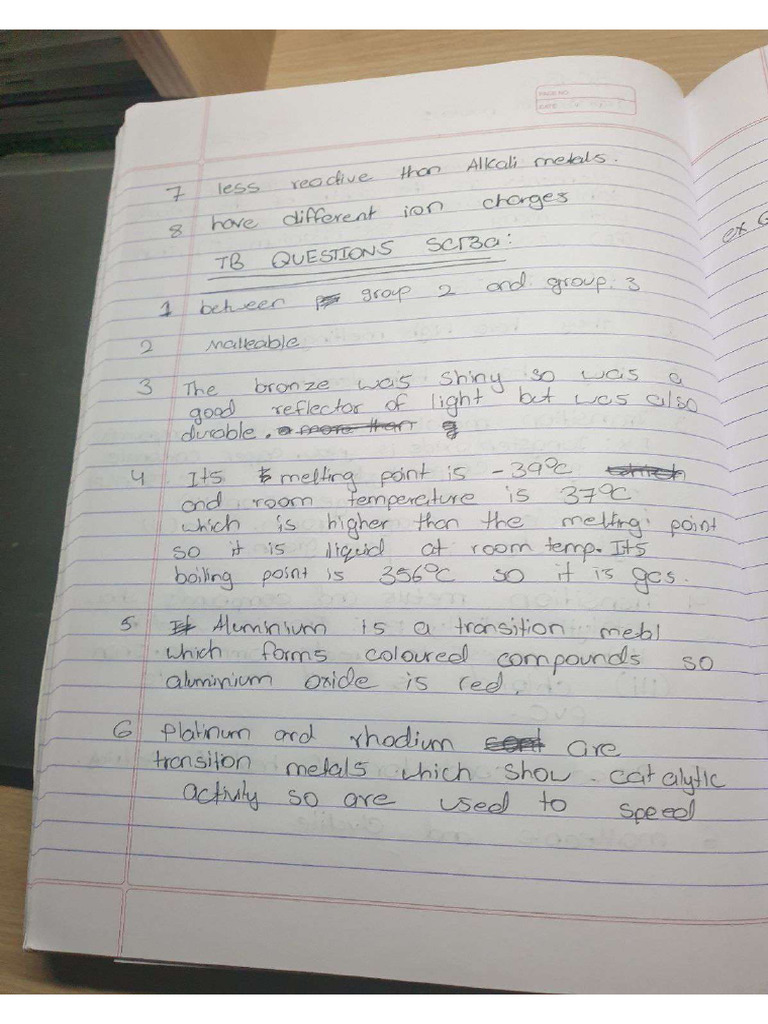 PAGE NO.
DATE
7 less reactive than Alkali metals.
8 have different ion charges
TB QUESTIONS SC13a:
1 between group 2 and group 3
2 Malleable
3 The bronze was shiny so was a
good reflector of light but was also
durable.
4 Its melting point is -39°C
and room temperature is 37°C
which is higher than the melting point
so it is liquid at room temp. Its
boiling point is 356°C so it is gas.
5 Aluminium is a transition metal
which forms coloured compounds so
aluminium oxide is red.
6 Platinum and rhodium are
transition metals which show catalytic
activity so are used to speed
ex